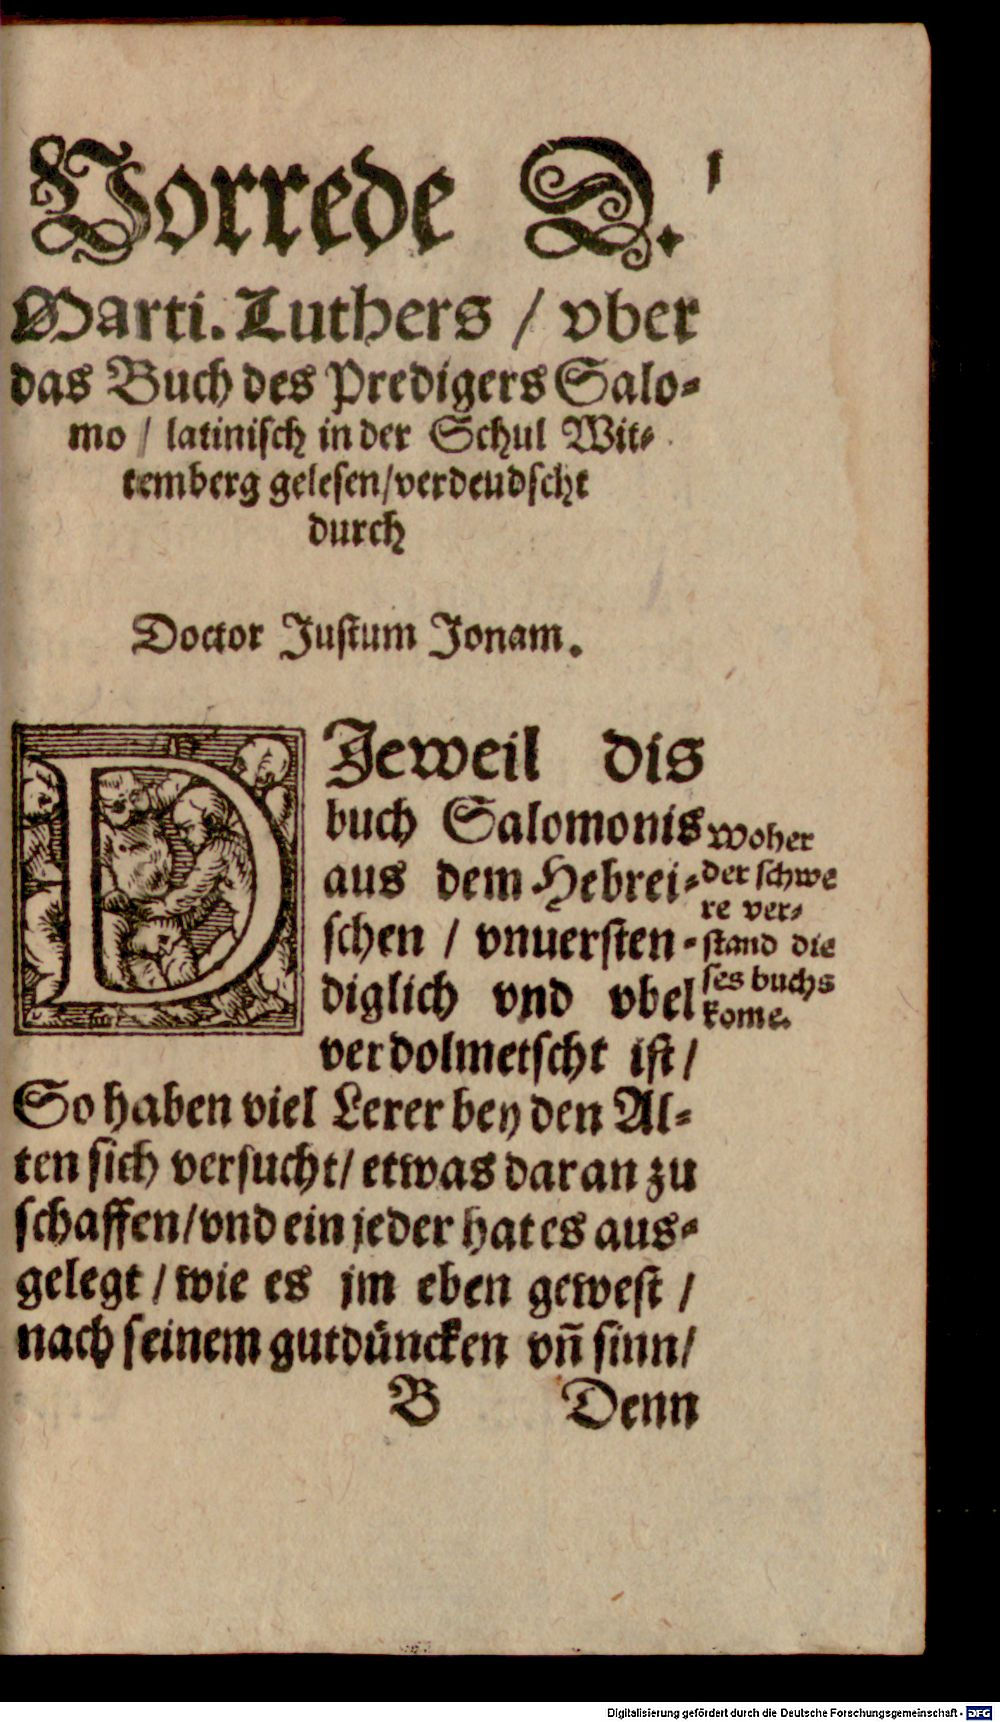 Vorrede D.
1
Marti. Luthers / vber
das Buch des Predigers Salo-
mo / latinisch in der Schul Wit-
temberg gelesen / verdeudscht
durch
Doctor Justum Jonam.
DJeweil dis
buch Salomonis
aus dem Hebrei-
schen / vnuersten-
diglich vnd vbel
verdolmetscht ist /
So haben viel Lerer bey den Al-
ten sich versucht / etwas daran zu
schaffen / vnd ein jeder hat es aus-
gelegt / wie es jm eben gewest /
nach seinem gutdüncken vñ sinn /
Woher
der schwe
re ver-
stand die
ses buchs
kome.
B
Denn
Digitalisierung gefördert durch die Deutsche Forschungsgemeinschaft - DFG